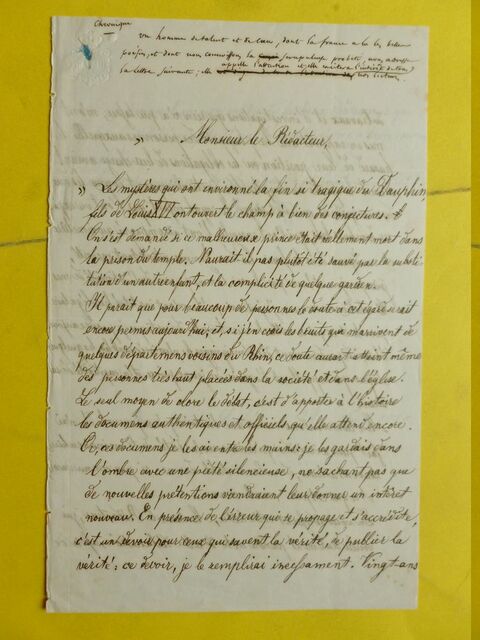 Chronique
un homme de talent et de cœur, dont la france a lu les belles
poésies, et dont nous connaissons la scrupuleuse probité, nous adresse
appelle l'attention et elle excitera l'intérêt de tous
la lettre suivante, elle nos lecteurs
" Monsieur le Rédacteur,
" Les mystères qui ont environné la fin si tragique du Dauphin,
fils de Louis XVI ont ouvert le champ à bien des conjectures.
On s'est demandé si ce malheureux prince était réellement mort dans
la prison du temple. N'aurait il pas plutôt été sauvé par la substi
tution d'un autre enfant, et la complicité de quelque gardien.
Il parait que pour beaucoup de personnes le doute à cet égard serait
encore permis aujourd'hui, et, si j'en crois les bruits qui m'arrivent de
quelques départemens voisins du Rhin, ce doute aurait atteint même
des personnes très haut placées dans la société et dans l'église.
Le seul moyen de clore le débat, c'est d'apporter à l'histoire
les documens authentiques et officiels qu'elle attend encore.
Or, ces documens je les ai entre les mains : je les gardais dans
l'ombre avec une piété silencieuse, ne sachant pas que
de nouvelles prétentions viendraient leur donner un intérêt
nouveau. En présence de l'erreur qui se propage et s'accrédite,
c'est un devoir pour ceux qui savent la vérité, de publier la
vérité : ce devoir, je le remplirai incessament. Vingt-ans